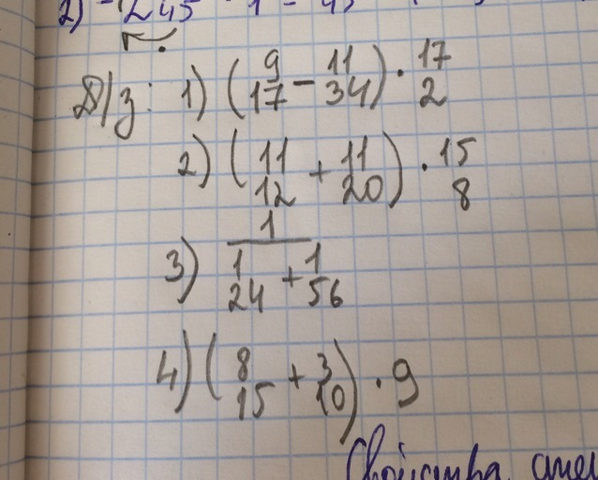 2) - 245
Д/з: 1) (9/17 - 11/34) · 17/2
2) (11/12 + 11/20) · 15/8
3) 1/(1/24 + 1/56)
4) (8/15 + 3/10) · 9
Свойства